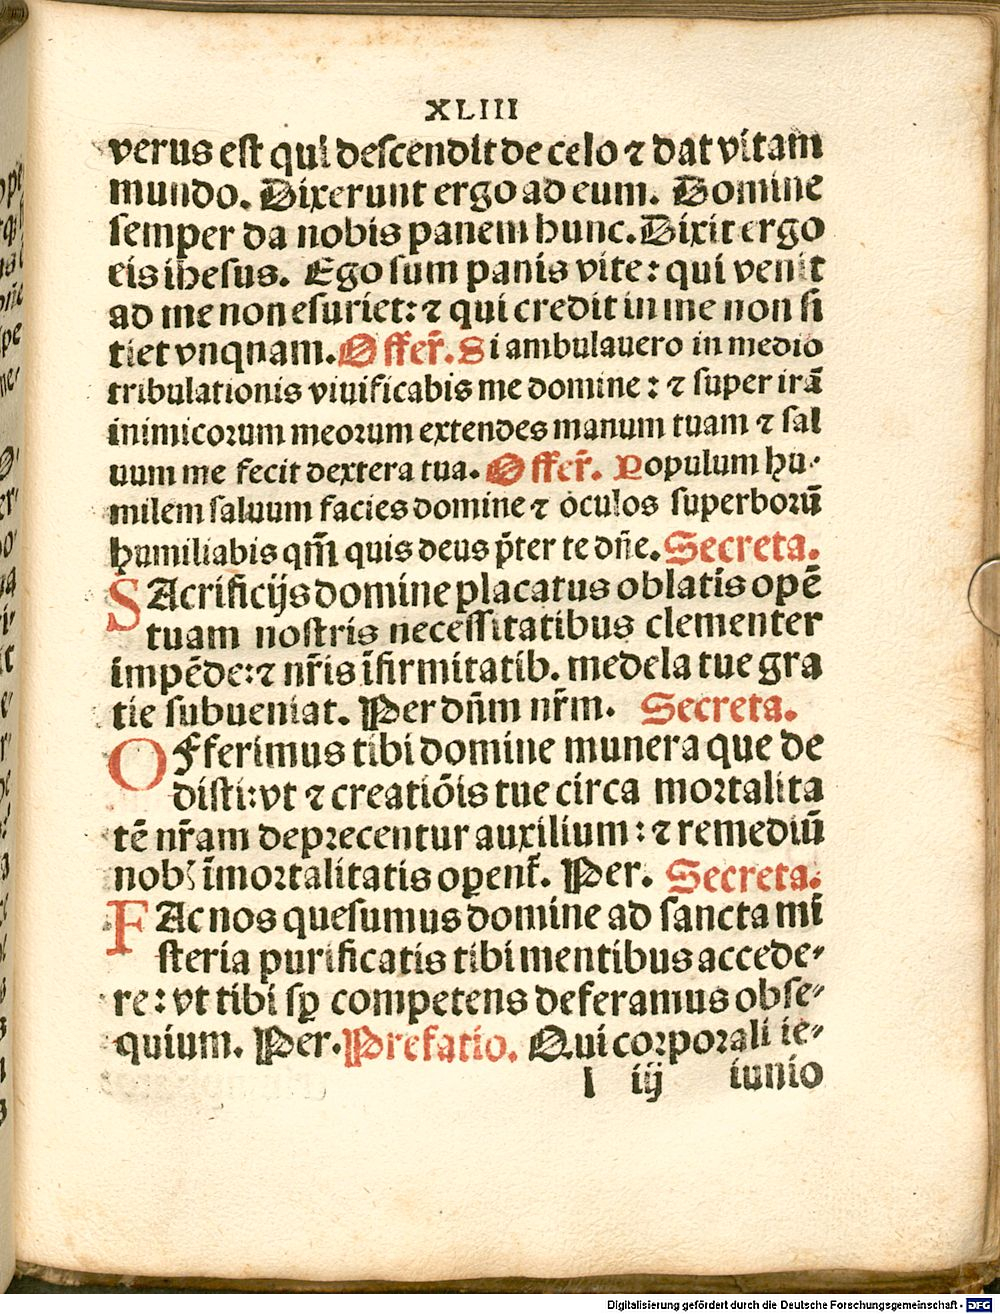 XLIII
verus est qui descendit de celo ⁊ dat vitam
mundo. Dixerunt ergo ad eum. Domine
semper da nobis panem hunc. Dixit ergo
eis ihesus. Ego sum panis vite: qui venit
ad me non esuriet: ⁊ qui credit in me non si
tiet vnqnam. Offer̃. Si ambulauero in medio
tribulationis viuificabis me domine: ⁊ super irã
inimicorum meorum extendes manum tuam ⁊ sal
uum me fecit dextera tua. Offer̃. Populum hu-
milem saluum facies domine ⁊ oculos superborũ
humiliabis qm̃ quis deus p̃ter te dñe. Secreta.
SAcrificijs domine placatus oblatis opẽ
tuam nostris necessitatibus clementer
impẽde: ⁊ nr̃is ĩfirmitatib. medela tue gra
tie subueniat. Per dñm nr̃m. Secreta.
OFferimus tibi domine munera que de
disti: vt ⁊ creatiõis tue circa mortalita
tẽ nr̃am deprecentur auxilium: ⁊ remediũ
nobꝭ ĩmortalitatis oꝑent̃. Per. Secreta.
FAc nos quesumus domine ad sancta mi
steria purificatis tibi mentibus accede-
re: vt tibi sꝑ competens deferamus obse-
quium. Per. Prefatio. Qui corporali ie-
l iij iunio
Digitalisierung gefördert durch die Deutsche Forschungsgemeinschaft - DFG